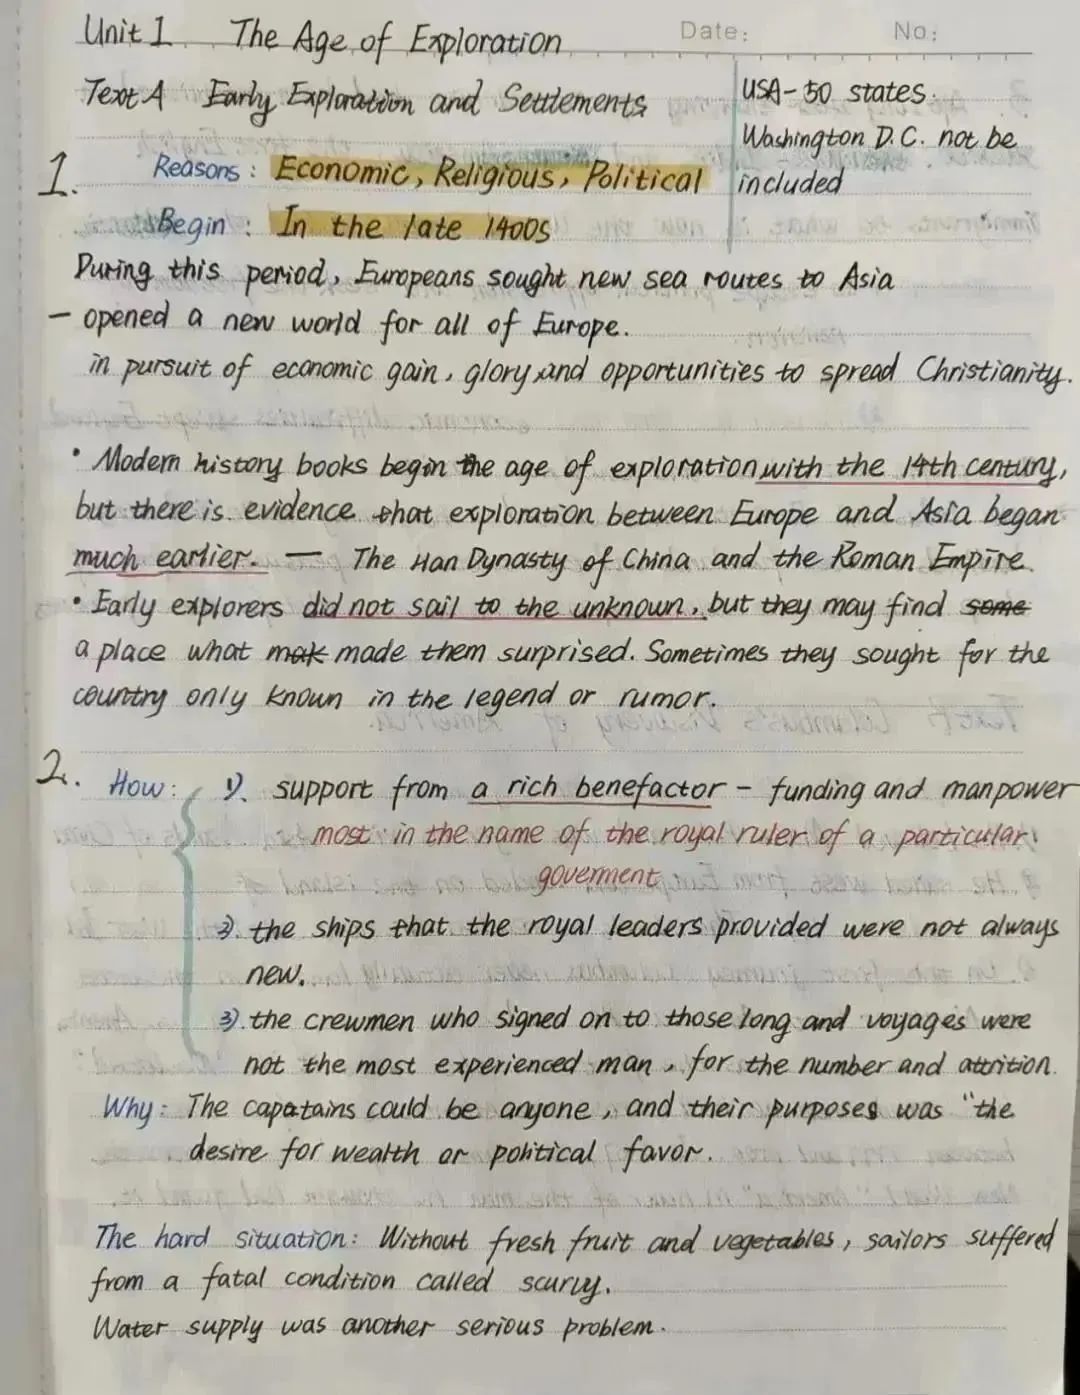 Unit 1 The Age of Exploration
Date: No:
Text A Early Exploration and Settlements
USA - 50 states.
Washington D.C. not be
included
1. Reasons: Economic, Religious, Political
Begin: In the late 1400s
During this period, Europeans sought new sea routes to Asia
— opened a new world for all of Europe.
in pursuit of economic gain, glory and opportunities to spread Christianity.
• Modern history books begin the age of exploration with the 14th century,
but there is evidence that exploration between Europe and Asia began
much earlier. — The Han Dynasty of China and the Roman Empire.
• Early explorers did not sail to the unknown, but they may find some
a place what mak made them surprised. Sometimes they sought for the
country only known in the legend or rumor.
2. How: 1). support from a rich benefactor - funding and manpower
most: in the name of the royal ruler of a particular
goverment
2). the ships that the royal leaders provided were not always
new.
3). the crewmen who signed on to those long and voyages were
not the most experienced man, for the number and attrition.
Why: The capatains could be anyone, and their purposes was "the
desire for wealth or political favor.
The hard situation: Without fresh fruit and vegetables, sailors suffered
from a fatal condition called scurvy.
Water supply was another serious problem.